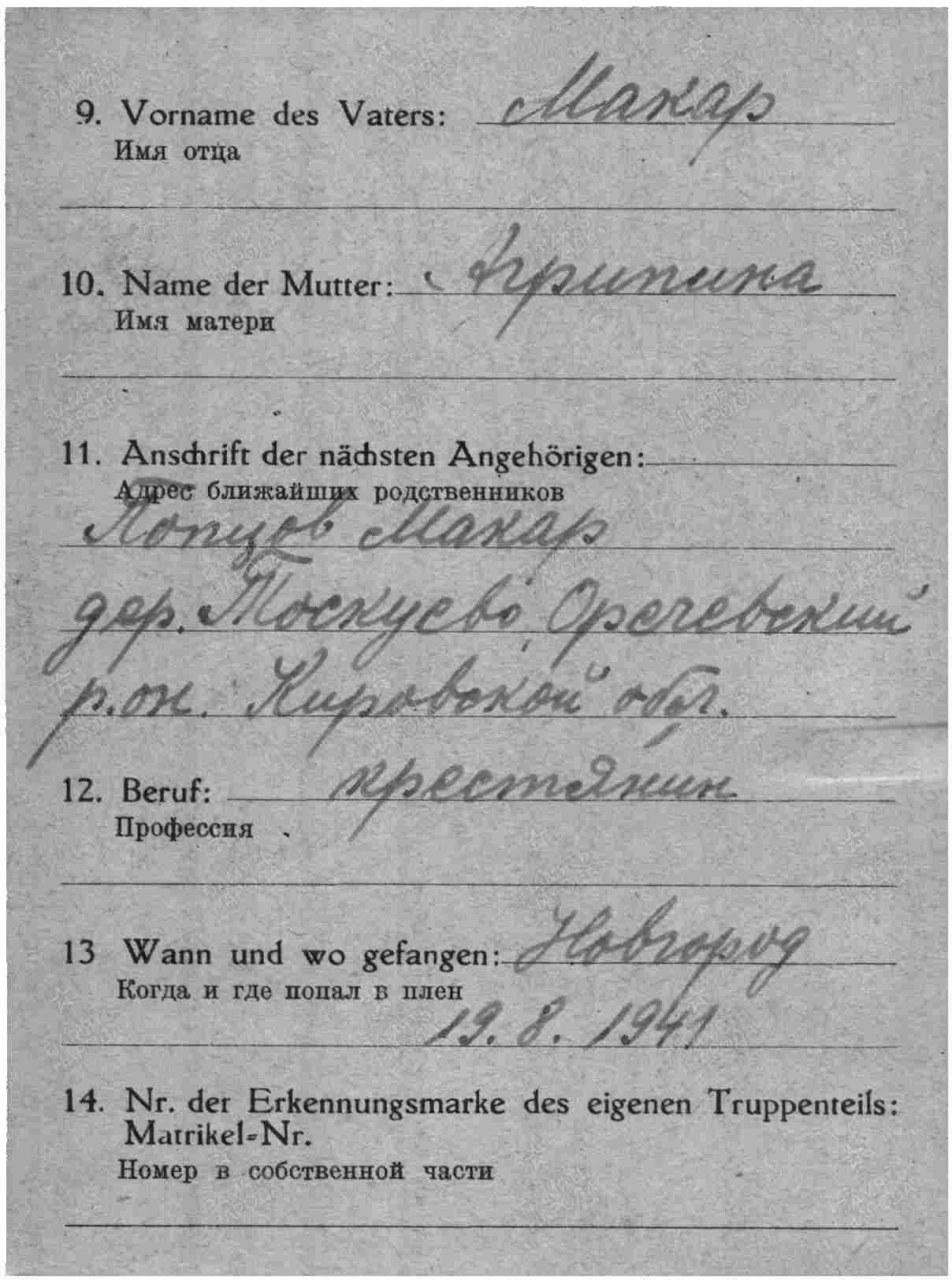 9. Vorname des Vaters: Макар
Имя отца
10. Name der Mutter: Агрипина
Имя матери
11. Anschrift der nächsten Angehörigen:
Адрес ближайших родственников
Попцов Макар
дер. Тоскуево, Оречевский
р.он. Кировской обл.
12. Beruf: крестянин
Профессия
13 Wann und wo gefangen: Новгород
Когда и где попал в плен
19. 8. 1941
14. Nr. der Erkennungsmarke des eigenen Truppenteils:
Matrikel-Nr.
Номер в собственной части